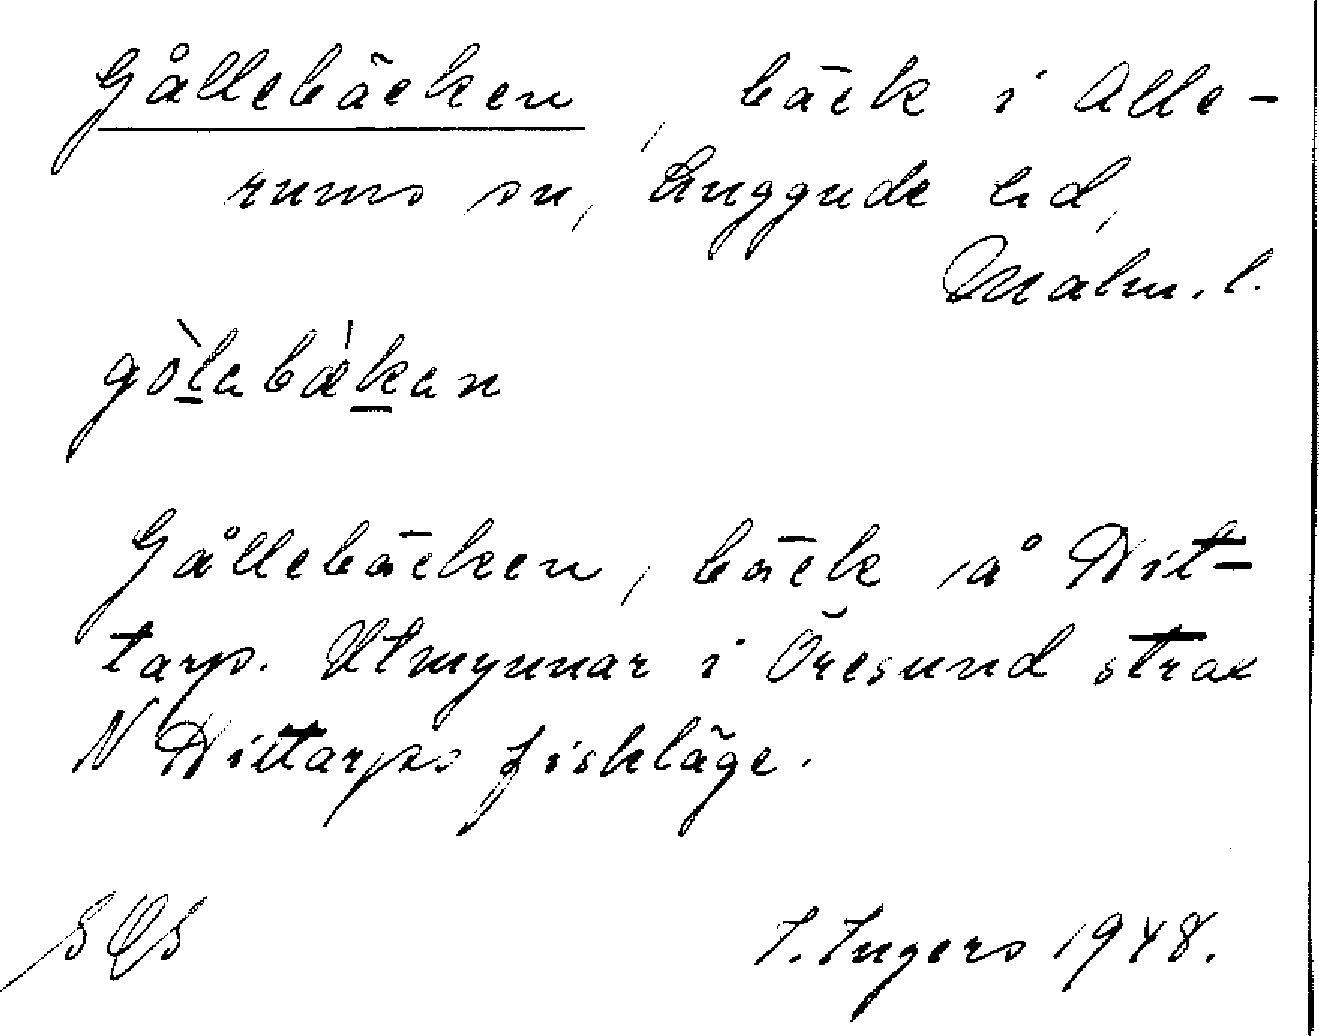 Gållebäcken, bäck i Alle-
rums sn, Luggude hd,
Malm. l.
gòlabǽkan
Gållebäcken, bäck på Dit-
tarp. Utmynnar i Öresund strax
N Hittarps fiskläge.
I. Ingers 1948.